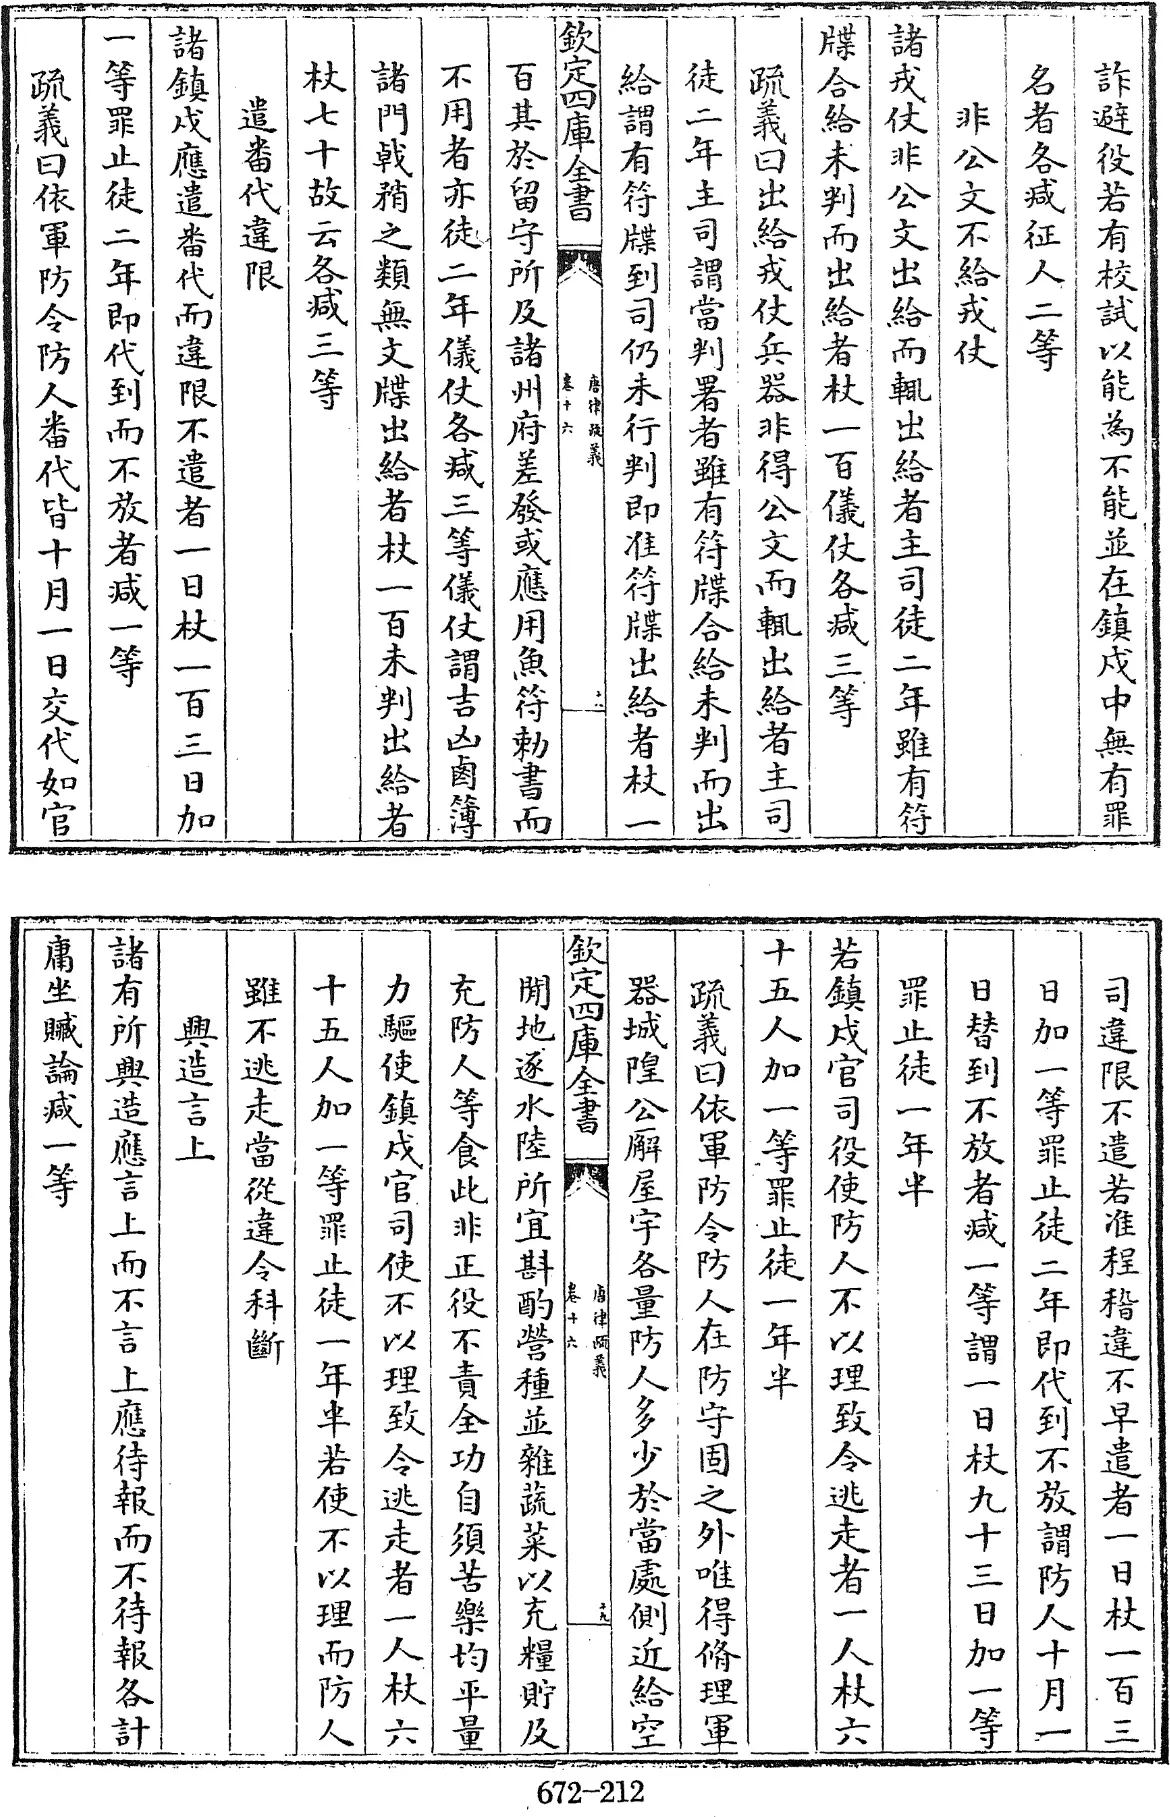 詐避役若有校試以能為不能並在鎮戍中無有罪
名者各減征人二等
非公文不給戎仗
諸戎仗非公文出給而輒出給者主司徒二年雖有符
牒合給未判而出給者杖一百儀仗各減三等
疏義曰出給戎仗兵器非得公文而輒出給者主司
徒二年主司謂當判署者雖有符牒合給未判而出
給謂有符牒到司仍未行判即准符牒出給者杖一
欽定四庫全書
唐律疏義
卷十六
百其於留守所及諸州府差發或應用魚符勅書而
不用者亦徒二年儀仗各減三等儀仗謂吉凶鹵簿
諸門戟矟之類無文牒出給者杖一百未判出給者
杖七十故云各減三等
遣番代違限
諸鎮戍應遣番代而違限不遣者一日杖一百三日加
一等罪止徒二年即代到而不放者減一等
疏義曰依軍防令防人番代皆十月一日交代如官
司違限不遣若准程稽違不早遣者一日杖一百三
日加一等罪止徒二年即代到不放謂防人十月一
日替到不放者減一等謂一日杖九十三日加一等
罪止徒一年半
若鎮戍官司役使防人不以理致令逃走者一人杖六
十五人加一等罪止徒一年半
疏義曰依軍防令防人在防守固之外唯得脩理軍
器城隍公廨屋宇各量防人多少於當處側近給空
欽定四庫全書
唐律疏義
卷十六
十九
閒地逐水陸所宜斟酌營種並雜蔬菜以充糧貯及
充防人等食此非正役不責全功自須苦樂均平量
力驅使鎮戍官司使不以理致令逃走者一人杖六
十五人加一等罪止徒一年半若使不以理而防人
雖不逃走當從違令科斷
興造言上
諸有所興造應言上而不言上應待報而不待報各計
庸坐贓論減一等
672-212